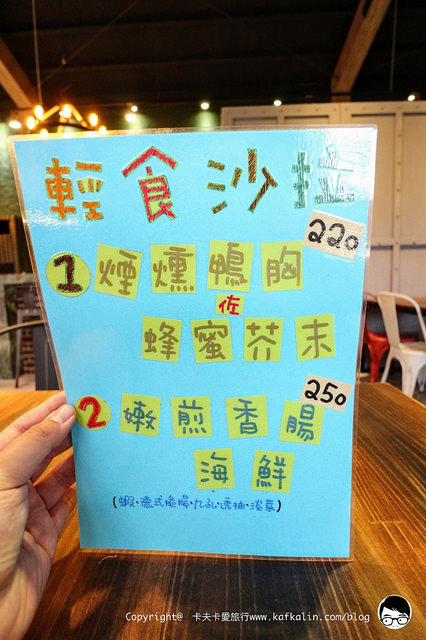 輕食沙拉
220
1 煙燻鴨胸
佐
蜂蜜芥末
250
2 嫩煎香腸
海鮮
(蝦、德式脆腸、九孔、透抽、淡菜)
Copyright@ 卡夫卡愛旅行www.kafkalin.com/blog